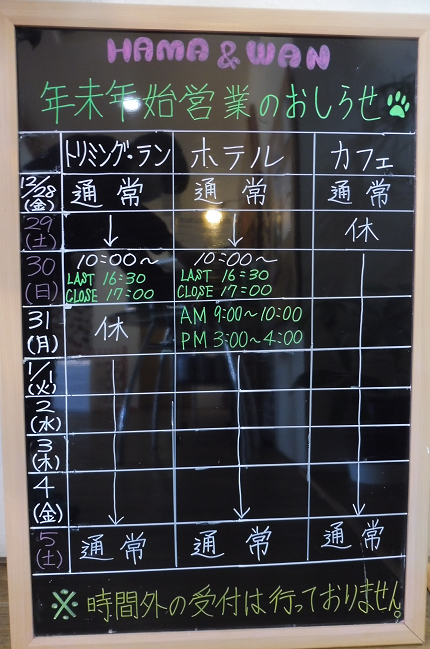 HAMA & WAN
年末年始営業のおしらせ
トリミング・ラン ホテル カフェ
12/28(金) 通常 通常 通常
29(土) ↓ ↓ 休
30(日) 10:00〜 LAST 16:30 CLOSE 17:00 10:00〜 LAST 16:30 CLOSE 17:00
31(月) 休 AM 9:00〜10:00 PM 3:00〜4:00
1/1(火)
2(水)
3(木)
4(金)
5(土) 通常 通常 通常
※時間外の受付は行っておりません。